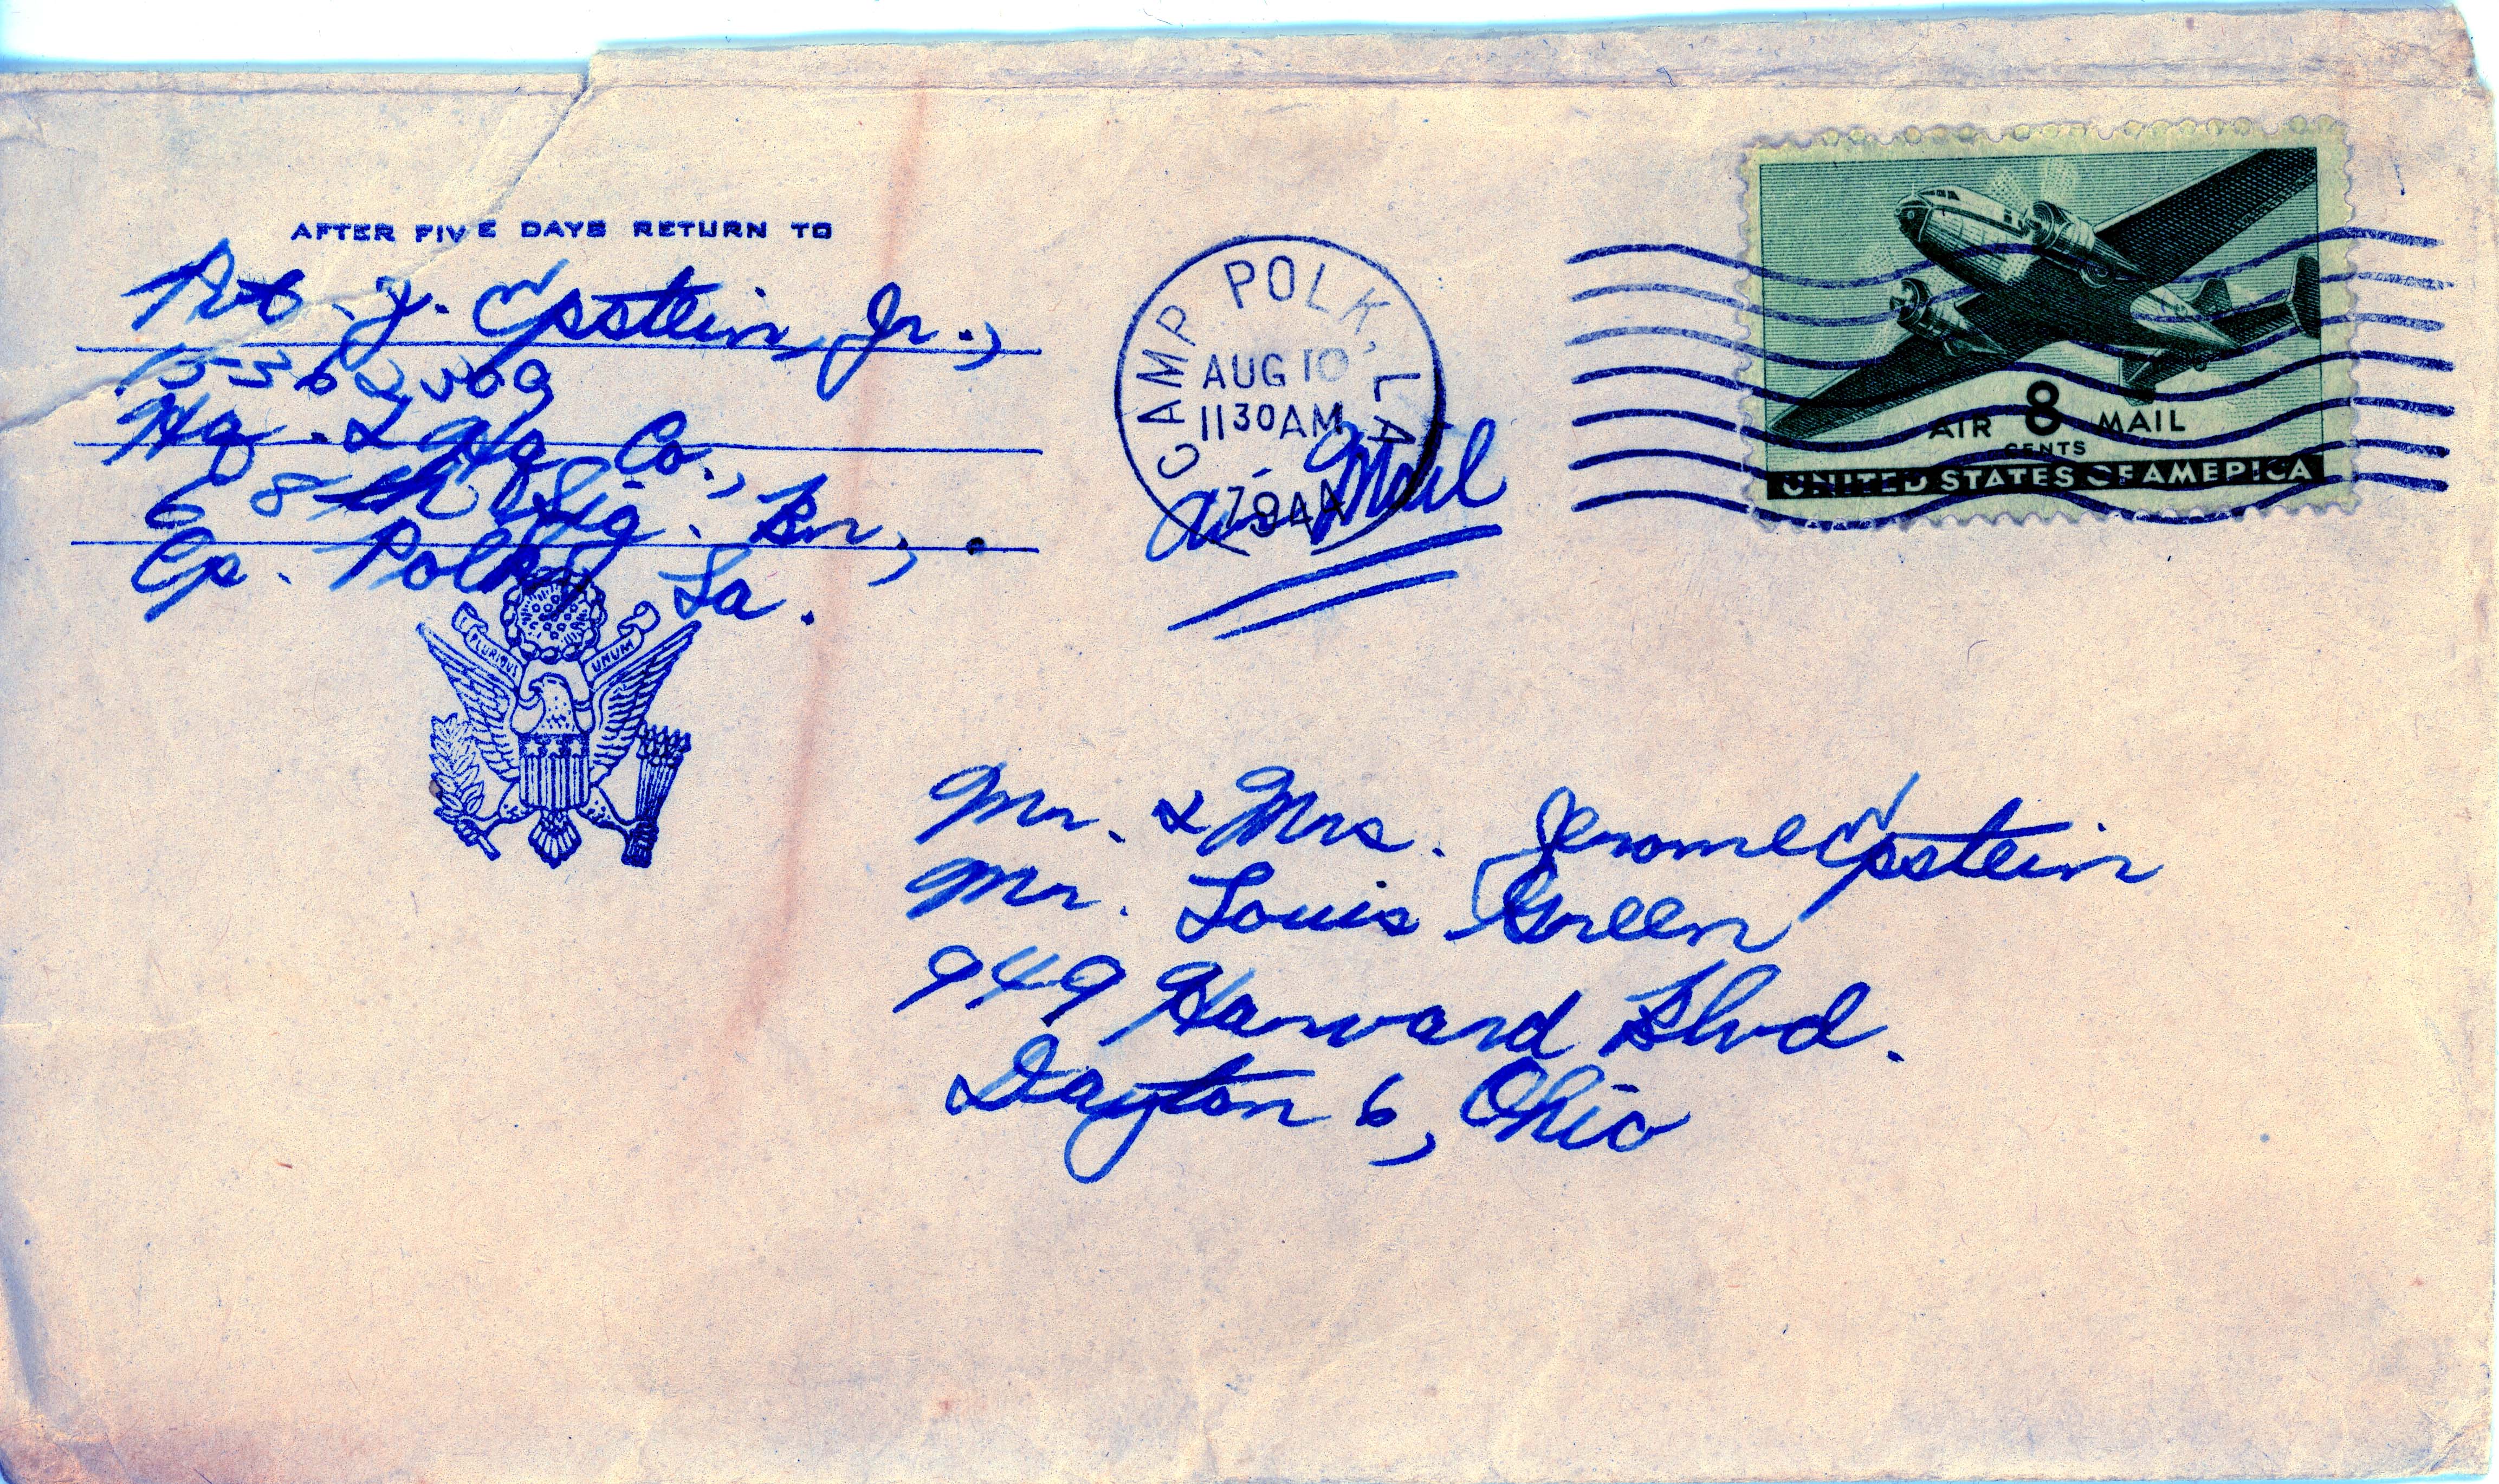 AFTER FIVE DAYS RETURN TO
Pvt. J. Epstein, Jr.,
Hq. & Hq. Co.,
E 8th Sig. Bn.,
Cp. Polk, La.
E PLURIBUS UNUM
CAMP POLK, LA.
AUG 10
11 30 AM
Air Mail
8
AIR MAIL
CENTS
UNITED STATES OF AMERICA
Mr. & Mrs. Jerome Epstein
Mr. Louis Green
949 Harvard Blvd.
Dayton 6, Ohio